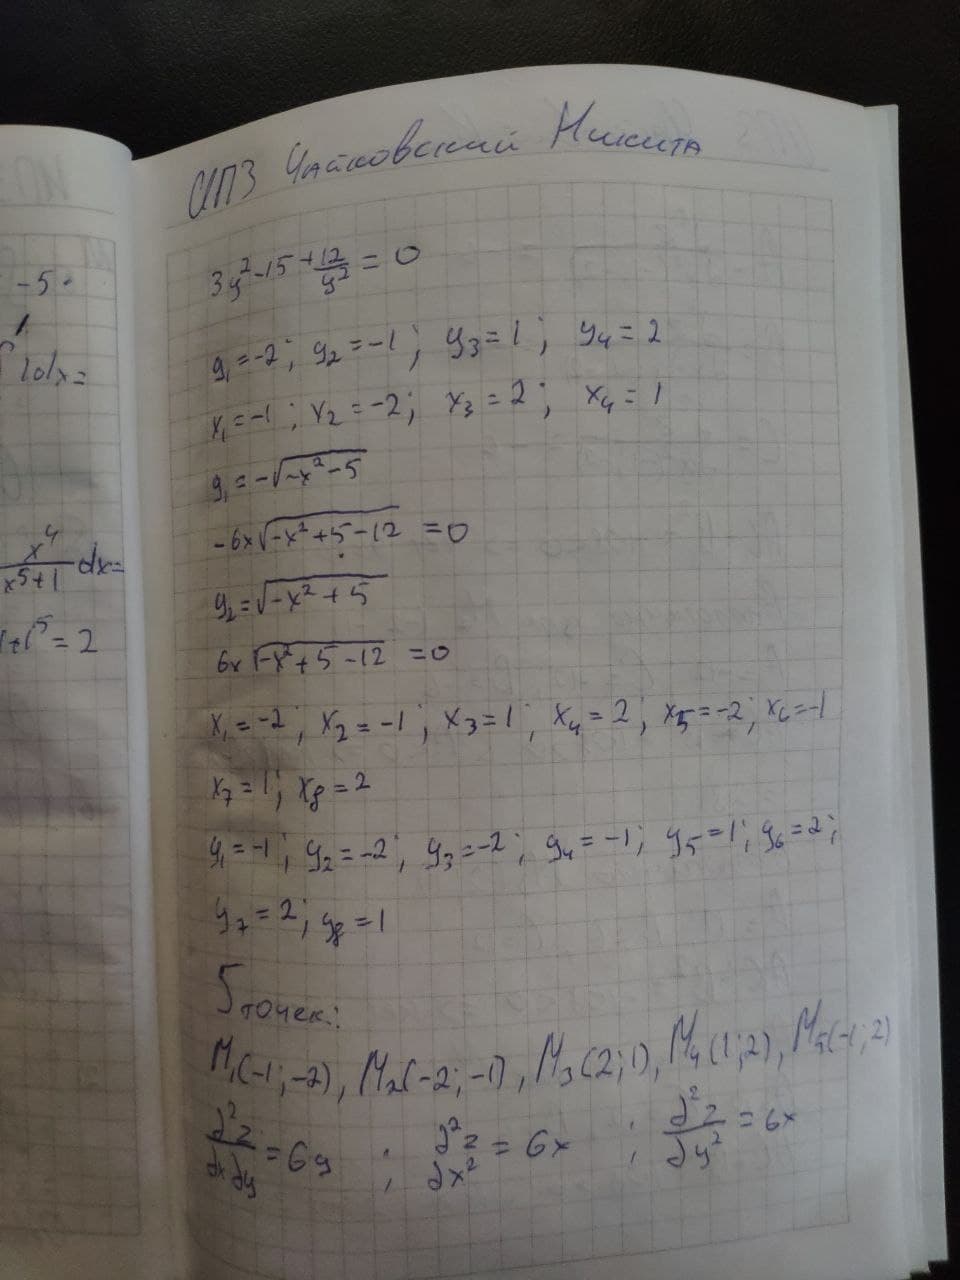 ИПЗ Чайковский Никита
3y²-15+12/y²=0
y₁=-2; y₂=-1; y₃=1; y₄=2
x₁=-1; x₂=-2; x₃=2; x₄=1
y₁=-√(-x²-5)
-6x√(-x²+5-12)=0
y₂=√(-x²+5)
6x√(-x²+5-12)=0
x₁=-2; x₂=-1; x₃=1; x₄=2; x₅=-2; x₆=-1
x₇=1; x₈=2
y₁=-1; y₂=-2; y₃=-2; y₄=-1; y₅=1; y₆=2;
y₇=2; y₈=1
5 точек:
M₁(-1;-2), M₂(-2;-1), M₃(2;1), M₄(1;2), M₅(-1;2)
∂²z/∂x∂y=6y; ∂²z/∂x²=6x; ∂²z/∂y²=6x
-5
1dx=
x⁴/x⁵+1 dx=
=2